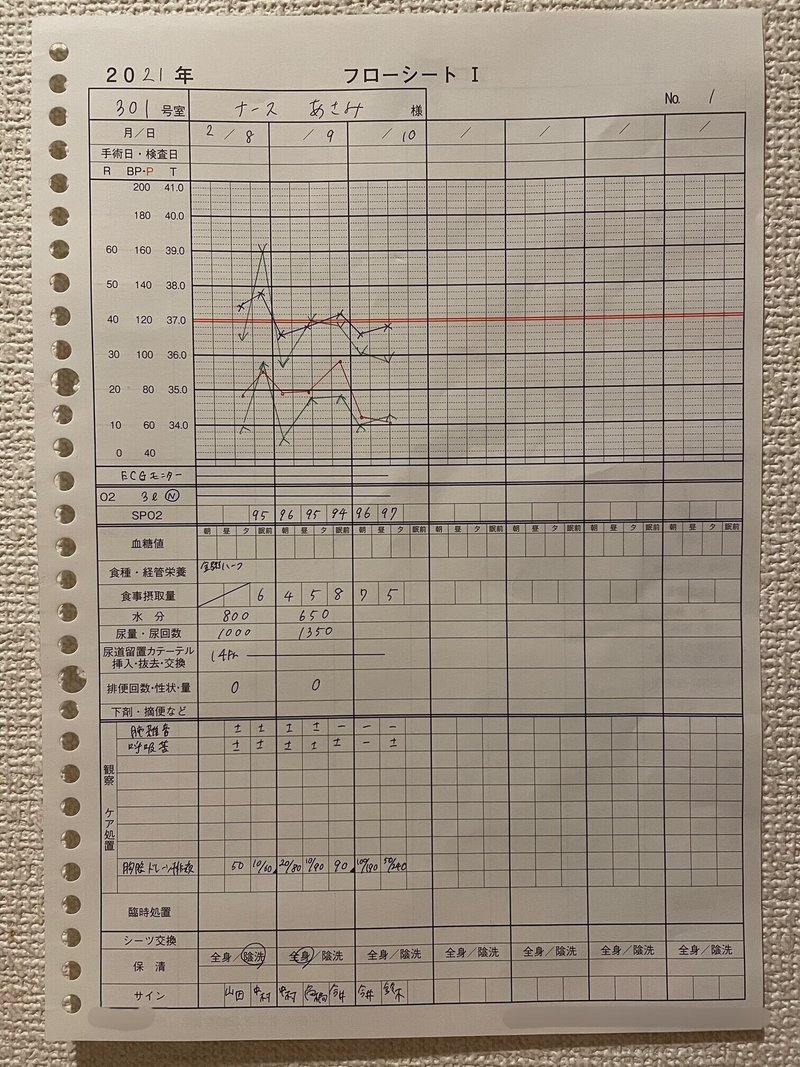 2021年 フローシート I
301号室 ナース あさみ 様 No. 1
月/日 2/8 /9 /10 / / / /
手術日・検査日
R BP・P T
200 41.0
180 40.0
60 160 39.0
50 140 38.0
40 120 37.0
30 100 36.0
20 80 35.0
10 60 34.0
0 40
ECGモニター
O2 3ℓ Ⓝ
SPO2 95 96 95 94 96 97
朝 昼 夕 眠前 朝 昼 夕 眠前 朝 昼 夕 眠前 朝 昼 夕 眠前 朝 昼 夕 眠前 朝 昼 夕 眠前 朝 昼 夕 眠前
血糖値
食種・経管栄養 ハーフ
食事摂取量 6 4 5 8 7 5
水 分 800 650
尿量・尿回数 1000 1350
尿道留置カテーテル
挿入・抜去・交換 14Fr
排便回数・性状・量 0 0
下剤・摘便など
肺雑音 ± ± ± ± − − −
呼吸苦 ± ± ± ± ± − ±
観察 ケア処置
胸腔ドレーン排液 50 10/60 20/80 10/90 90 100/190 50/240
臨時処置
シーツ交換
保 清 全身/陰洗 全身/陰洗 全身/陰洗 全身/陰洗 全身/陰洗 全身/陰洗 全身/陰洗
サイン 山田 中村 中村 高橋 今井 今井 鈴木